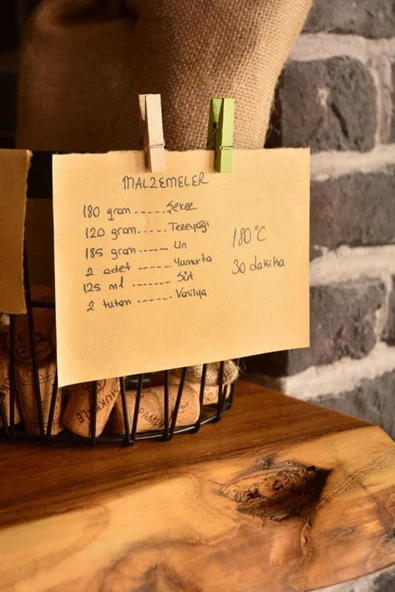 MALZEMELER
180 gram ----- Şeker
120 gram ----- Tereyağı
185 gram ----- Un
2 adet ------- Yumurta
125 ml ------- Süt
2 tutam ------ Vanilya
180°C
30 dakika